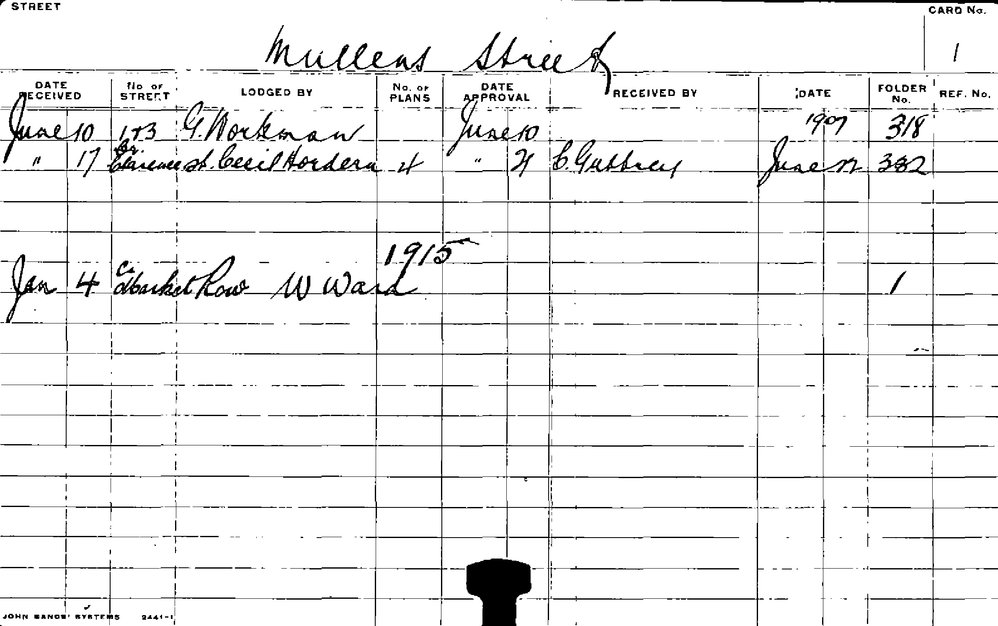 STREET CARD No.
Mullens Street 1
DATE RECEIVED No of STREET LODGED BY No. of PLANS DATE APPROVAL RECEIVED BY DATE FOLDER No. REF. No.
June 10 183 G. Workman June 10 1907 318
" 17 Cr Clarence St. Cecil Hordern 4 " 21 C. Guthrey June 332
1915
Jan 4 Cr Market Row W Ward 1
JOHN SANDS' SYSTEMS 2441-1